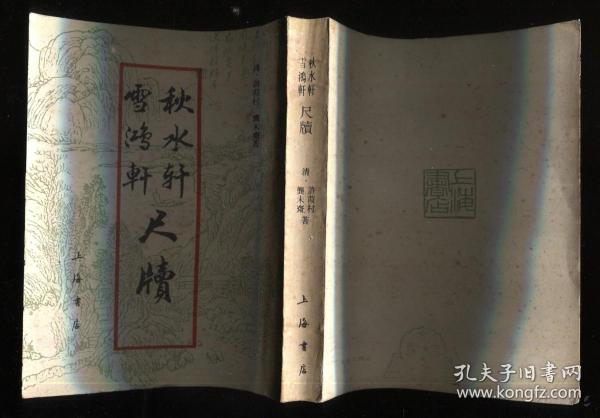 秋水轩
雪鸿軒
尺牘
清·許葭村 龔未齋著
上海書店
秋水軒
雪鴻軒
尺牘
清·許葭村
龔未齋 著
上海書店
上海
書店
孔夫子旧书网
www.kongfz.com